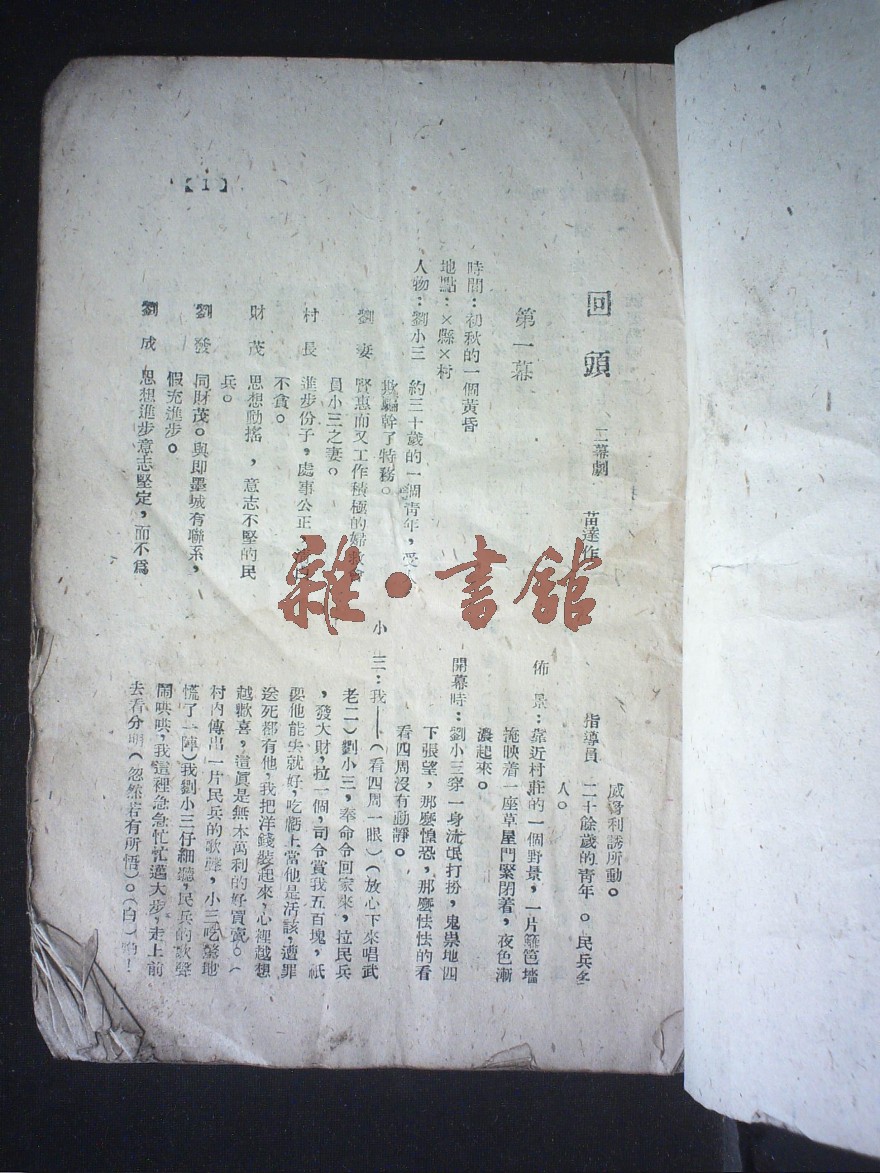 回頭 二幕劇 苗達作
第一幕
時間：初秋的一個黃昏
地點：×縣×村
人物：劉小三 約三十歲的一個青年，受
欺騙幹了特務。
劉妻 賢惠而又工作積極的婦救會
員小三之妻。
村長 進步份子，處事公正
不貪。
財茂 思想動搖，意志不堅的民
兵。
劉發 同財茂。與即墨城有聯系，
假充進步。
劉成 思想進步意志堅定，而不爲
威脅利誘所動。
指導員 二十餘歲的青年。民兵多
人。
佈景：靠近村莊的一個野景，一片籬笆墻
掩映着一座草屋門緊閉着，夜色漸
濃起來。
開幕時：劉小三穿一身流氓打扮，鬼祟地四
下張望，那麼惶恐，那麼怯怯的看
看四周沒有動靜。
小三：我——（看四周一眼）（放心下來唱武
老二）劉小三，奉命令回家來，拉民兵
，發大財，拉一個，司令賞我五百塊，祇
要他能失就好，吃虧上當他是活該，遭罪
送死都有他，我把洋錢裝起來，心裡越想
越歡喜，這眞是無本萬利的好買賣。（
村內傳出一片民兵的歌聲，小三吃驚地
慌了一陣）我劉小三仔細聽，民兵的歌聲
鬧哄哄，我這裡急急忙忙邁大步，走上前
去看分明（忽然若有所悟）。（白）喲！
【1】
雜·書館